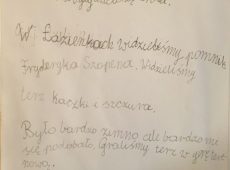 W Łazienkach widzieliśmy pomnik
Fryderyka Szopena. Widzieliśmy
terz kaczki i szczura.
Było bardzo zimno ale bardzo mi
się podobało. Graliśmy terz w grę